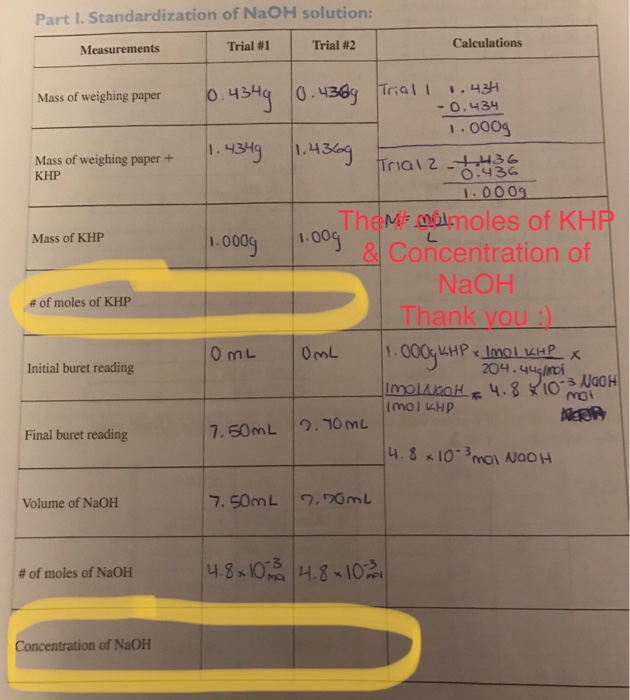 Part I. Standardization of NaOH solution:
Measurements Trial #1 Trial #2 Calculations
Mass of weighing paper 0.434g 0.436g Trial 1 1.434
- 0.434
1.000g
Mass of weighing paper +
KHP 1.434g 1.436g Trial 2 - 1.436
0.436
1.000g
Mass of KHP 1.000g 1.00g M= mol
L
The # of moles of KHP
& Concentration of
NaOH
Thank you :)
# of moles of KHP
Initial buret reading 0 mL 0mL 1.000g KHP x 1mol KHP x
204.44g/mol
1mol NaOH = 4.8 x 10-3 NaOH
1mol KHP mol
Final buret reading 7.50mL 7.70mL
4.8 x 10-3 mol NaOH
Volume of NaOH 7.50mL 7.70mL
# of moles of NaOH 4.8x10-3 mol 4.8x10-3 mol
Concentration of NaOH